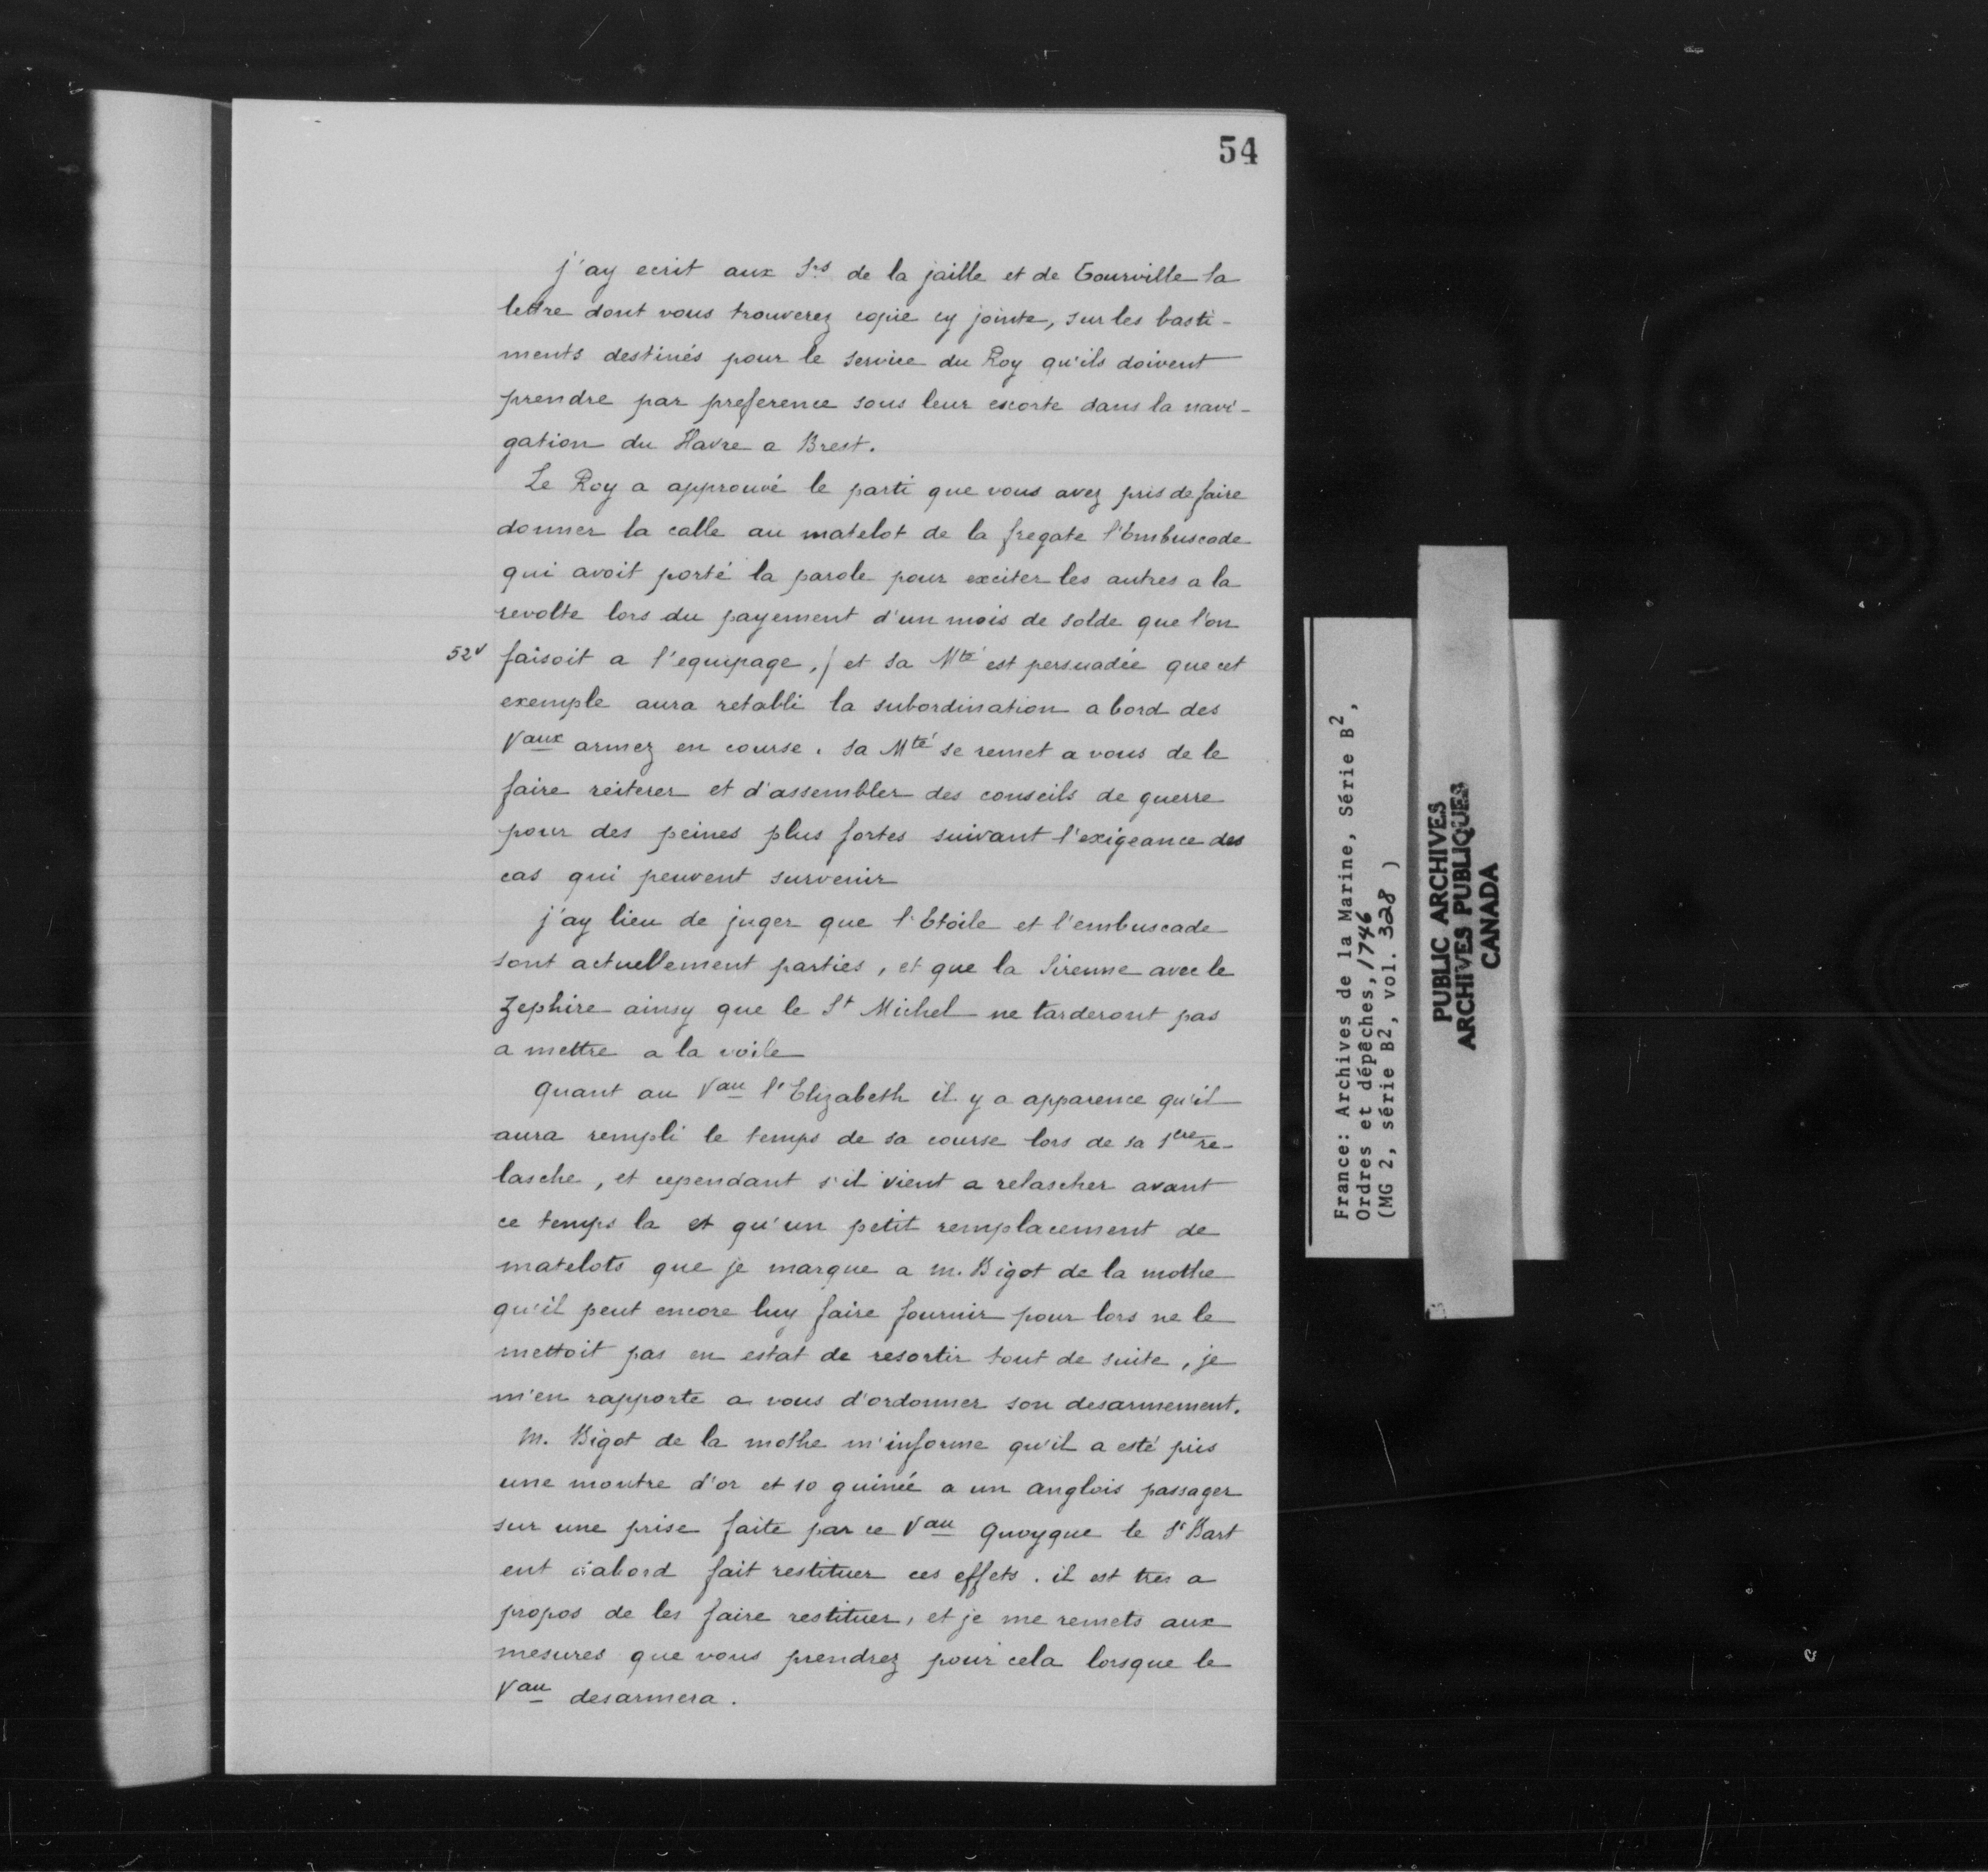 54
j'ay ecrit aux Srs de la jaille et de Tourville la
lettre dont vous trouverez copie cy jointe, sur les basti-
ments destinés pour le service du Roy qu'ils doivent
prendre par preference sous leur escorte dans la navi-
gation du Havre a Brest.
Le Roy a approuvé le parti que vous avez pris de faire
donner la calle au matelot de la fregate l'Embuscade
qui avoit porté la parole pour exciter les autres a la
revolte lors du payement d'un mois de solde que l'on
52v faisoit a l'equipage, / et sa Mté est persuadée que cet
exemple aura retabli la subordination a bord des
Vaux armez en course. sa Mté se remet a vous de le
faire reiterer et d'assembler des conseils de guerre
pour des peines plus fortes suivant l'exigeance des
cas qui peuvent survenir
j'ay lieu de juger que l'Etoile et l'embuscade
sont actuellement parties, et que la Sirenne avec le
Zephire ainsy que le St Michel ne tarderont pas
a mettre a la voile
Quant au Vau l'Elizabeth il y a apparence qu'il
aura rempli le temps de sa course lors de sa 1ere re-
lasche, et cependant s'il vient a relascher avant
ce temps la et qu'un petit remplacement de
matelots que je marque a m. Bigot de la mothe
qu'il peut encore luy faire fournir pour lors ne le
mettoit pas en estat de resortir tout de suite, je
m'en rapporte a vous d'ordonner son desarmement.
M. Bigot de la mothe m'informe qu'il a esté pris
une montre d'or et 10 guinée a un anglois passager
sur une prise faite par ce Vau Quoyque le Sr Bart
eut d'abord fait restituer ces effets. il est tres a
propos de les faire restituer, et je me remets aux
mesures que vous prendrez pour cela lorsque le
Vau desarmera.
France: Archives de la Marine, Série B2,
Ordres et dépêches, 1746
(MG 2, série B2, vol. 328 )
PUBLIC ARCHIVES
ARCHIVES PUBLIQUES
CANADA